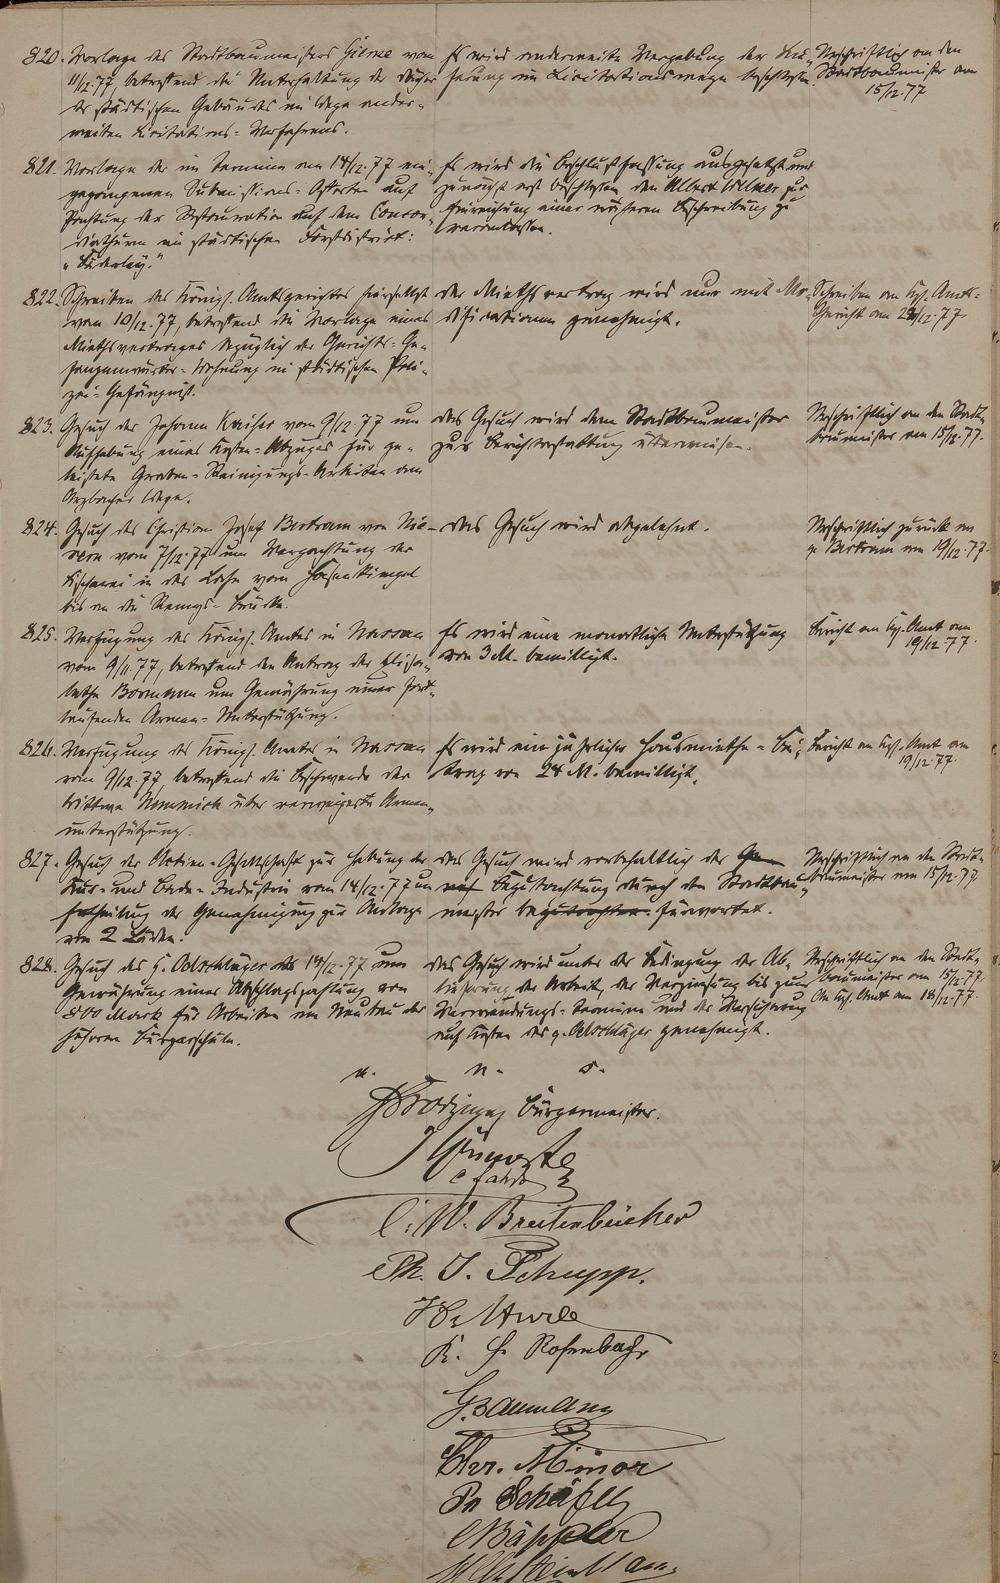 820. Vorlage des Stadtbaumeisters Girne vom
11/12.77, betreffend die Unterhaltung der
der städtischen Gebäude im Wege ander-
weiten Licitations-Verfahrens.
Es wird anderweite Vergebung der
im Licitationswege beschlossen.
Urschriftlich an den
Stadtbaumeister am
15/12.77
821. Vorlage der im Termine am 14/12.77 ein-
gegangenen Submissions-Offerten auf
Pachtung der Restauration auf dem Concor-
diathurm im städtischen Forstdistrict:
"Bäderley."
Es wird die Beschlußfassung ausgesetzt und
zunächst erst beschlossen den Albert zur
Einreichung einer näheren Beschreibung zu
veranlassen.
822. Schreiben des Königl. Amtsgerichtes hierselbst
vom 10/12.77, betreffend die Vorlage eines
Miethsvertrages bezüglich der Gerichts-Ge-
fangenwärter-Wohnung im städtischen Poli-
zei-Gefängniß.
Der Miethsvertrag wird nur mit Mo-
dificationen genehmigt.
Schreiben an Kgl. Amts-
Gericht am
823. Gesuch des Johann Kaiser vom 9/12.77 um
Aufhebung eines Kosten-Abzuges für ge-
leistete Graben-Reinigungs-Arbeiten am
Arzbacher Wege.
Das Gesuch wird dem Stadtbaumeister
zur Berichterstattung überwiesen.
Urschriftlich an den Stadt-
baumeister am 15/12.77.
824. Gesuch des Christian Josef Bertram von Nie-
vern vom 7/12.77 um Verpachtung der
Fischerei in der Lahn vom
bis an die Remys-Brücke.
Das Gesuch wird abgelehnt.
Urschriftlich zurück an
p. Bertram am 19/12.77.
825. Verfügung des Königl. Amtes in Nassau
vom 9/11.77, betreffend den Antrag der Elisa-
betha Bormann um Gewährung einer fort-
laufenden Armen-Unterstützung.
Es wird eine monatliche Unterstützung
von 3 M. bewilligt.
Bericht an Kgl. Amt am
19/12.77.
826. Verfügung des Königl. Amtes in Nassau
vom 9/12.77 betreffend die Beschwerde der
Wittwe über verweigerte Armen-
unterstützung.
Es wird ein jährlicher Hausmiethe-Bei-
trag von 24 M. bewilligt.
Bericht an Kgl. Amt am
19/12.77.
827. Gesuch der Actien-Gesellschaft zur Hebung der
Kur- und Bade-Industrie vom 14/12.77 um
Ertheilung der Genehmigung zur Anlage
von 2 Läden.
Das Gesuch wird vorbehaltlich der
Begutachtung durch den Stadtbau-
meister begutachtet befürwortet.
Urschriftlich an den Stadt-
baumeister am 15/12.77
828. Gesuch des H. Oelschläger des 14/12.77 um
Gewährung einer Abschlagszahlung von
500 Mark für Arbeiten am Neubau der
höheren Bürgerschule.
Das Gesuch wird unter der Bedingung der Ab-
lieferung der Arbeit, der Verzinsung bis zum
Verwendungs-Termine und der Versicherung
auf Kosten des p. Oelschläger genehmigt.
Urschriftlich an den Stadt-
baumeister am 15/12.77.
An Kgl. Amt am 18/12.77.
Bürgermeister.
C. W. Breitenbücher
Ph. J. Schupp.
K. H. Rosenbach
G. Baumann
Chr. Minor
Ph Schäfer
Bäppler